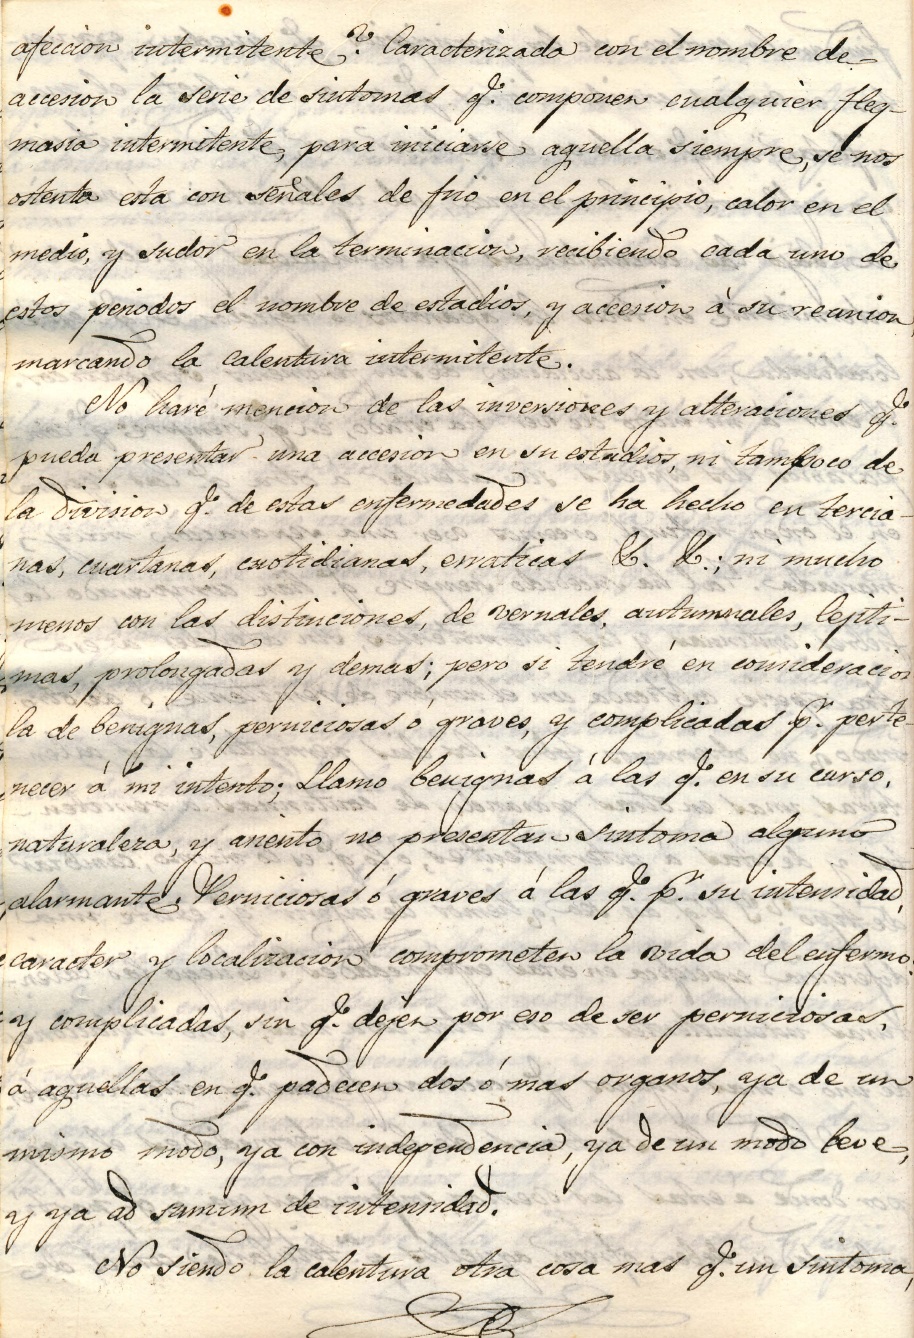 afeccion intermitente? Caracterizada con el nombre de
accesion la serie de sintomas q.e componen cualquier fleg-
masia intermitente, para iniciarse aquella siempre, se nos
ostenta esta con señales de frio en el principio, calor en el
medio, y sudor en la terminacion, recibiendo cada uno de
estos periodos el nombre de estadios, y accesion á su reunion
marcando la calentura intermitente.
No haré mencion de las inversiones y alteraciones q.e
pueda presentar una accesion en su estadios, ni tampoco de
la division q.e de estas enfermedades se ha hecho en tercia-
nas, cuartanas, cuotidianas, erraticas &. &.; ni mucho
menos con las distinciones, de vernales, autumnales, lejiti-
mas, prolongadas y demas; pero si tendré en consideracion
la de benignas, perniciosas ó graves, y complicadas p.r perte-
necer á mi intento; Llamo benignas á las q.e en su curso,
naturaleza, y asiento no presentan sintoma alguno
alarmante. Perniciosas ó graves á las q.e p.r su intensidad,
caracter y localizacion comprometen la vida del enfermo;
y complicadas, sin q.e dejen por eso de ser perniciosas,
á aquellas en q.e padecen dos ó mas organos, ya de un
mismo modo, ya con independencia, ya de un modo leve,
y ya ad sumum de intensidad.
No siendo la calentura otra cosa mas q.e un sintoma,